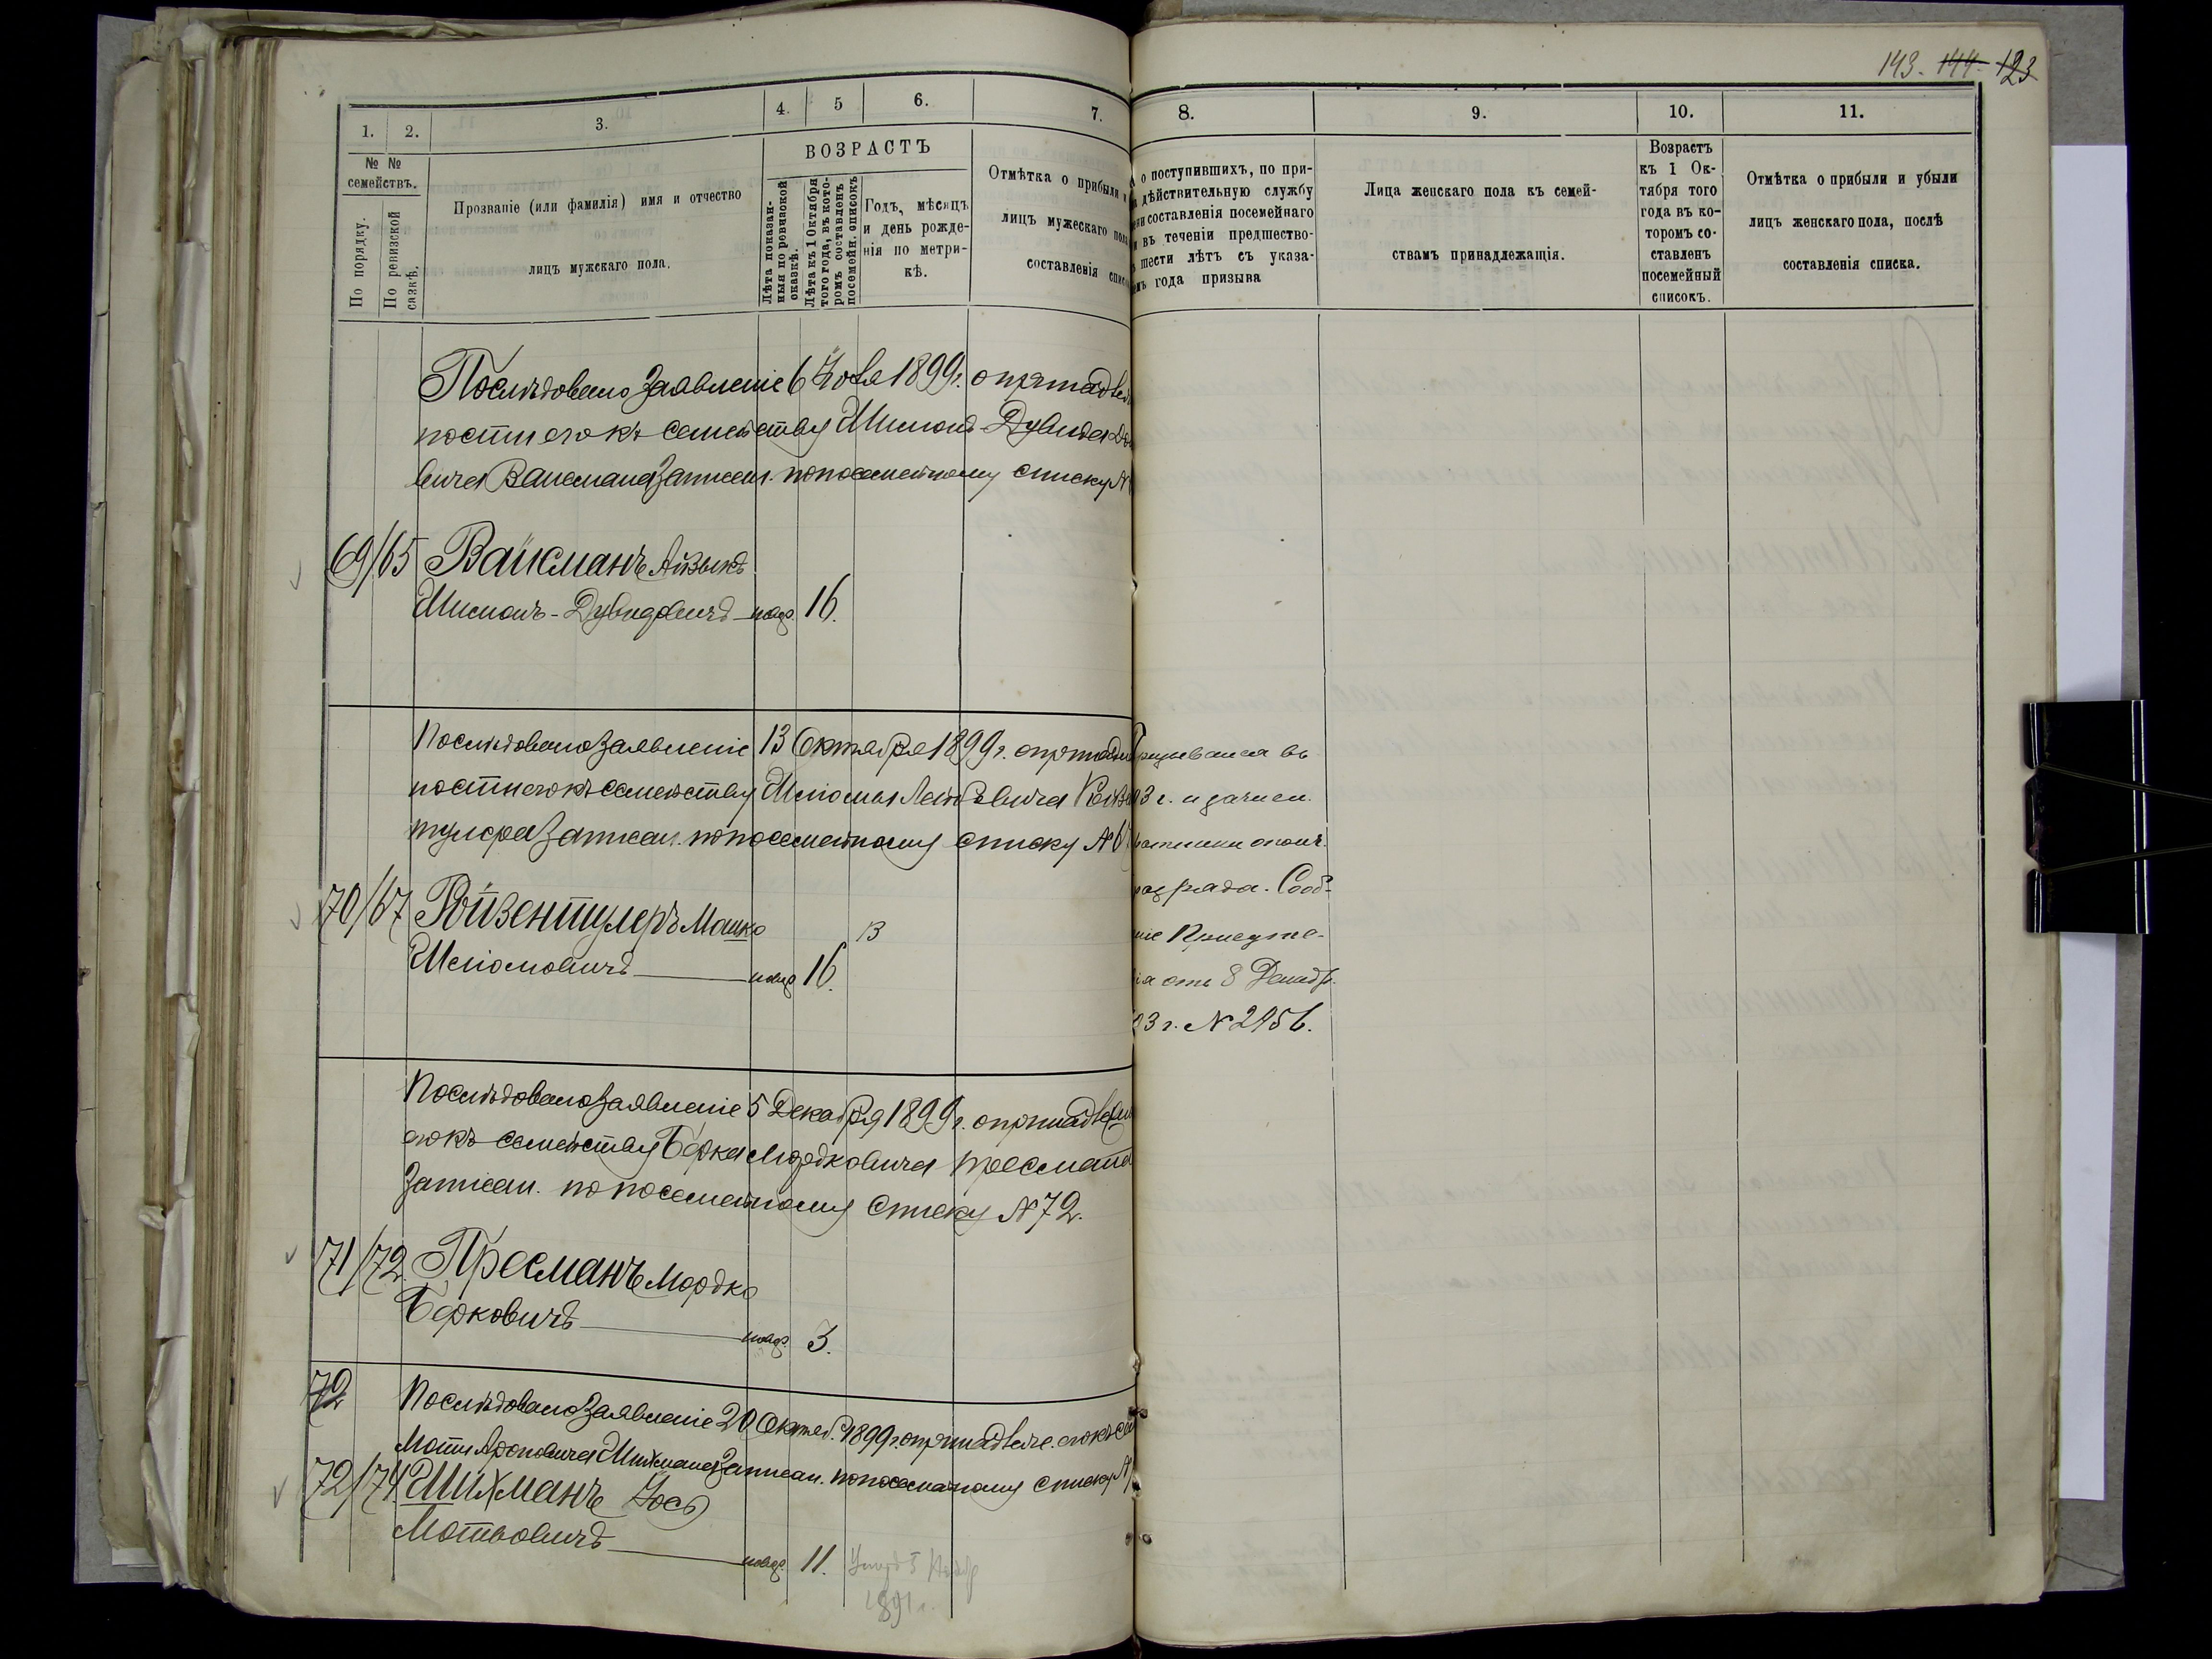 143. 144. 123
1.
2.
3.
4.
5
6.
7.
8.
9.
10.
11.
№ №
семействъ.
По порядку.
По ревизской
сказкѣ.
Прозваніе (или фамилія) имя и отчество
лицъ мужскаго пола.
ВОЗРАСТЪ
Лѣта показан-
ныя по ревизской
сказкѣ.
Лѣта къ 1 Октября
того года, въ кото-
ромъ составленъ
посемейн. списокъ
Годъ, мѣсяцъ
и день рожде-
нія по метри-
кѣ.
Отмѣтка о прибыли
лицъ мужескаго пола
составленія спис
о поступившихъ, по при-
дѣйствительную службу
составленія посемейнаго
въ теченіи предшество-
шести лѣтъ съ указа-
года призыва
Лица женскаго пола къ семей-
ствамъ принадлежащія.
Возрастъ
къ 1 Ок-
тября того
года въ ко-
торомъ со-
ставленъ
посемейный
списокъ.
Отмѣтка о прибыли и убыли
лицъ женскаго пола, послѣ
составленія списка.
Послѣдовало заявленіе 6 1899г.
ности его къ семейству Шимона-Дувида
вича Вайсмана записан. по посемейному списку №
69/65 Вайсманъ Айзыкъ
Шимонъ-Дувидовичъ 16.
Послѣдовало заявленіе 13 Октября 1899г.
ности его къ семейству Шліомы Лейбовича
тулера записан. по посемейному списку № 6
70/67 Ройзентулеръ Машко
13
Шліомовичъ 16.
въ
3 г. и зачисл.
ополч.
разряда. Сооб-
ніе Присутс-
ія отъ 8 Декабр.
3 г. № 2456.
Послѣдовало заявленіе 5 Декабря 1899г.
его къ семейству Берка Мордковича Пресмана
Записан. по посемейному списку № 72.
71/72. Пресманъ Мордко
Берковичъ 3.
72
Послѣдовало заявленіе 20 Октяб. 1899г. его къ
Мотя Ароновича Шихмана Записан. по посемейному списку №
72/74 Шихманъ Іось
Мотьовичъ 11.
1891 г.